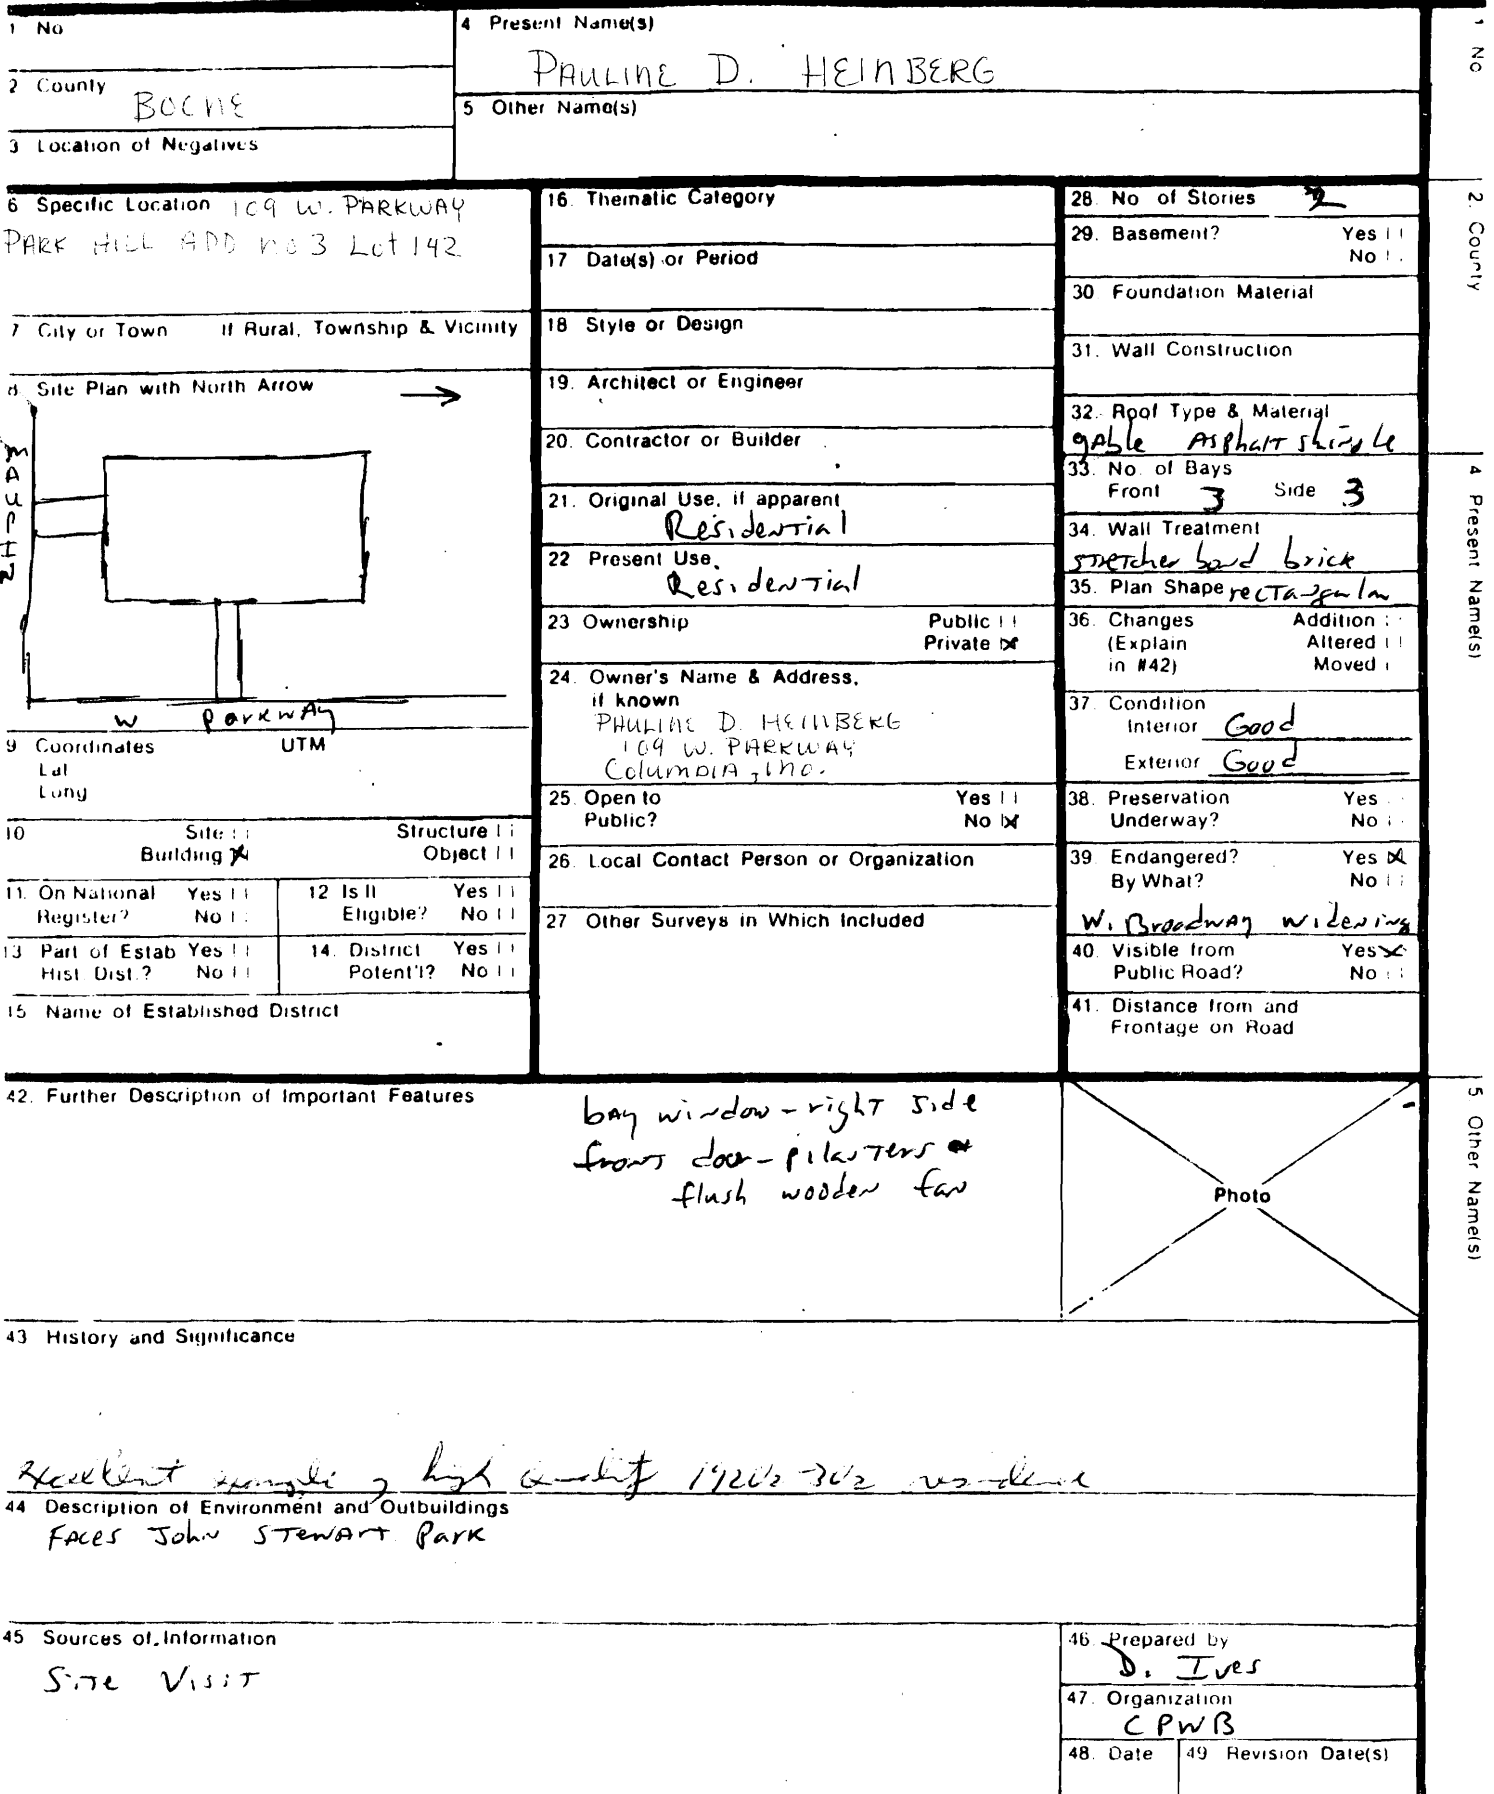 1 No
4 Present Name(s)
PAULINE D. HEINBERG
2 County
BOONE
5 Other Name(s)
3 Location of Negatives
6 Specific Location 109 W. PARKWAY
PARK HILL ADD no 3 Lot 142
7 City or Town If Rural, Township & Vicinity
8. Site Plan with North Arrow
MAUPIN
W Parkway
9 Coordinates UTM
Lat
Long
10 Site
Structure
Building
Object
11. On National Register? Yes No
12 Is It Eligible? Yes No
13 Part of Estab Hist. Dist.? Yes No
14. District Potent'l? Yes No
15 Name of Established District
16. Thematic Category
17 Date(s) or Period
18 Style or Design
19. Architect or Engineer
20. Contractor or Builder
21. Original Use, if apparent
Residential
22 Present Use
Residential
23 Ownership Public
Private
24. Owner's Name & Address,
if known
PAULINE D. HEINBERG
109 W. PARKWAY
Columbia, mo.
25. Open to Yes
Public? No
26. Local Contact Person or Organization
27 Other Surveys in Which Included
28. No of Stories 2
29. Basement? Yes
No
30 Foundation Material
31. Wall Construction
32. Roof Type & Material
gable Asphalt shingle
33. No. of Bays
Front 3 Side 3
34. Wall Treatment
stretcher bond brick
35. Plan Shape rectangular
36. Changes Addition
(Explain Altered
in #42) Moved
37. Condition
Interior Good
Exterior Good
38. Preservation Yes
Underway? No
39. Endangered? Yes
By What? No
W. Broadway widening
40. Visible from Yes
Public Road? No
41. Distance from and
Frontage on Road
42. Further Description of Important Features
bay window - right side
front door - pilasters
flush wooden fan
Photo
43 History and Significance
Excellent example of high quality 1920's-30's residence
44 Description of Environment and Outbuildings
Faces John Stewart Park
45 Sources of Information
Site Visit
46. Prepared by
D. Ives
47. Organization
CPWB
48. Date
49 Revision Date(s)
1 No
2. County
4 Present Name(s)
5 Other Name(s)